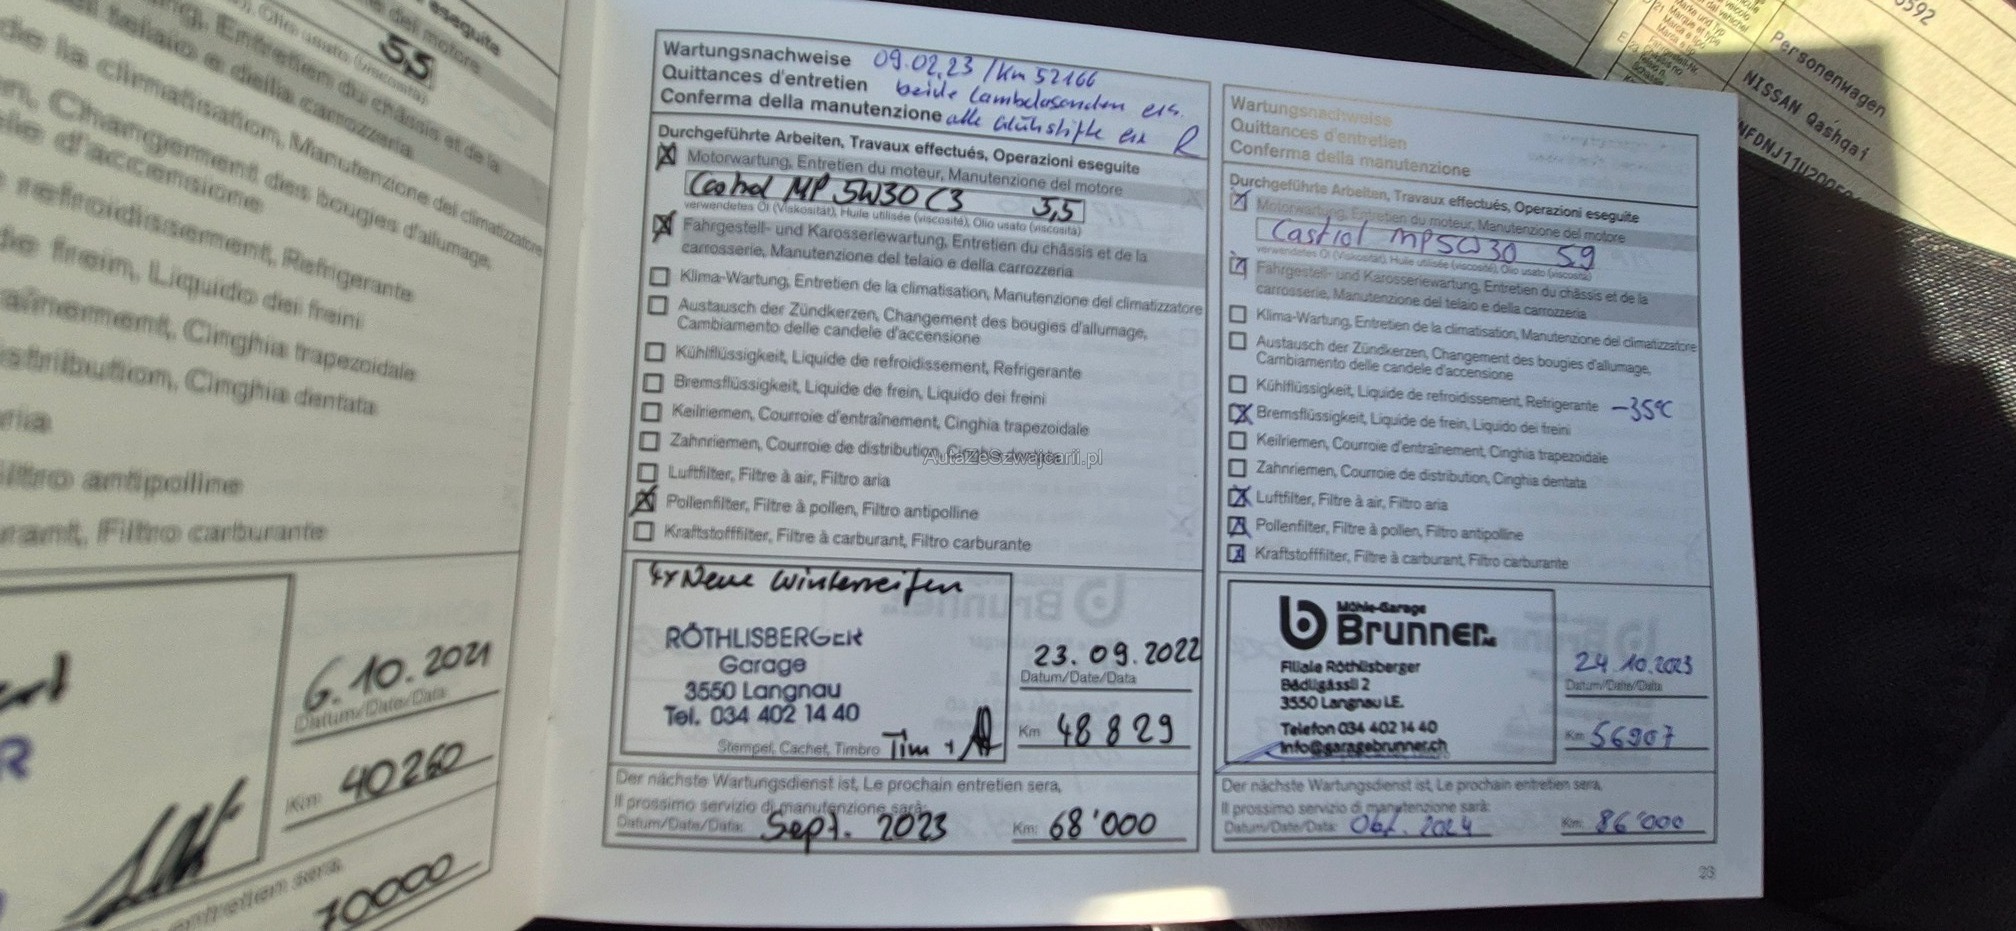 eseguite
5,5
del motore
Olio usato (viscosità)
Entretien du châssis et de la
telaio e della carrozzeria
de la climatisation, Manutenzione del climatizzatore
Changement des bougies d'allumage,
d'accensione
refroidissement, Refrigerante
de frein, Liquido dei freini
Cinghia trapezoidale
distribution, Cinghia dentata
aria
Filtro antipolline
Filtro carburante
6.10.2021
Datum/Date/Data
Km: 40260
entretien sera,
70000
Wartungsnachweise 09.02.23 /Km 52166
Quittances d'entretien beide Lambdasonden ers.
Conferma della manutenzione alle Glühstifte ers R
Durchgeführte Arbeiten, Travaux effectués, Operazioni eseguite
Motorwartung, Entretien du moteur, Manutenzione del motore
Castrol MP 5W30 C3 5,5
verwendetes Öl (Viskosität), Huile utilisée (viscosité), Olio usato (viscosità)
Fahrgestell- und Karosseriewartung, Entretien du châssis et de la
carrosserie, Manutenzione del telaio e della carrozzeria
Klima-Wartung, Entretien de la climatisation, Manutenzione del climatizzatore
Austausch der Zündkerzen, Changement des bougies d'allumage,
Cambiamento delle candele d'accensione
Kühlflüssigkeit, Liquide de refroidissement, Refrigerante
Bremsflüssigkeit, Liquide de frein, Liquido dei freini
Keilriemen, Courroie d'entraînement, Cinghia trapezoidale
Zahnriemen, Courroie de distribution, Cinghia dentata
AutaZeSzwajcarii.pl
Luftfilter, Filtre à air, Filtro aria
Pollenfilter, Filtre à pollen, Filtro antipolline
Kraftstofffilter, Filtre à carburant, Filtro carburante
4x Neue Winterreifen
RÖTHLISBERGER
Garage
3550 Langnau
Tel. 034 402 14 40
Stempel, Cachet, Timbro Tim +
23.09.2022
Datum/Date/Data
Km 48829
Der nächste Wartungsdienst ist, Le prochain entretien sera,
Il prossimo servizio di manutenzione sarà:
Datum/Date/Data: Sept. 2023 Km: 68'000
Wartungsnachweise
Quittances d'entretien
Conferma della manutenzione
Durchgeführte Arbeiten, Travaux effectués, Operazioni eseguite
Motorwartung, Entretien du moteur, Manutenzione del motore
Castrol MP5W30 5.9
verwendetes Öl (Viskosität), Huile utilisée (viscosité), Olio usato (viscosità)
Fahrgestell- und Karosseriewartung, Entretien du châssis et de la
carrosserie, Manutenzione del telaio e della carrozzeria
Klima-Wartung, Entretien de la climatisation, Manutenzione del climatizzatore
Austausch der Zündkerzen, Changement des bougies d'allumage,
Cambiamento delle candele d'accensione
Kühlflüssigkeit, Liquide de refroidissement, Refrigerante -35°C
Bremsflüssigkeit, Liquide de frein, Liquido dei freini
Keilriemen, Courroie d'entraînement, Cinghia trapezoidale
Zahnriemen, Courroie de distribution, Cinghia dentata
Luftfilter, Filtre à air, Filtro aria
Pollenfilter, Filtre à pollen, Filtro antipolline
Kraftstofffilter, Filtre à carburant, Filtro carburante
Möhle-Garage
Brunner AG
Filiale Röthlisberger
Bädligässli 2
3550 Langnau i.E.
Telefon 034 402 14 40
info@garagebrunner.ch
24.10.2023
Datum/Date/Data
Km 56907
Der nächste Wartungsdienst ist, Le prochain entretien sera,
Il prossimo servizio di manutenzione sarà:
Datum/Date/Data: Okt. 2024 Km: 86'000
23
Personenwagen
NISSAN Qashqai